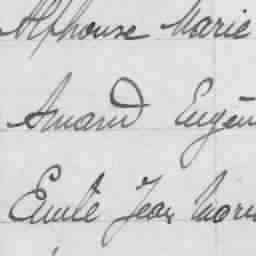 Alphonse Marie
Amand Eugèn
Emile Jean Marie